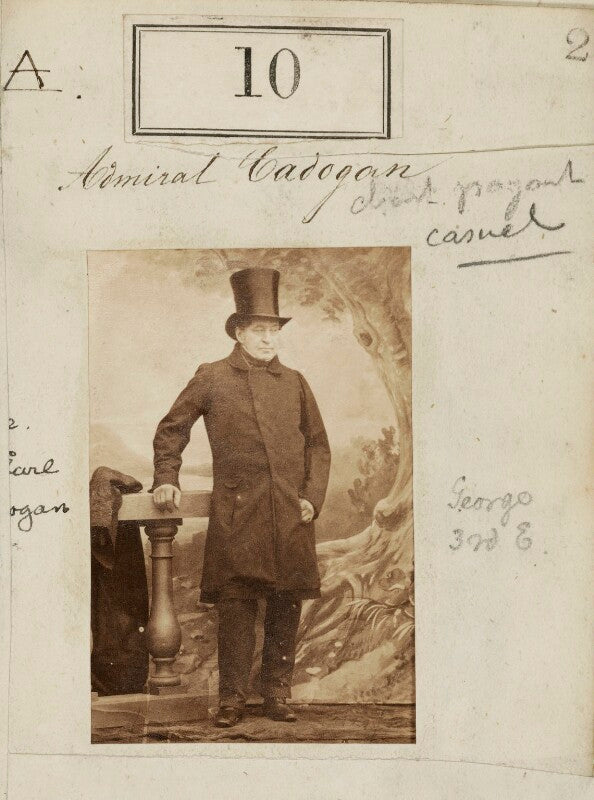 A.
10
2
Admiral Cadogan
casuel
2.
Earl
ogan
George
3rd E.